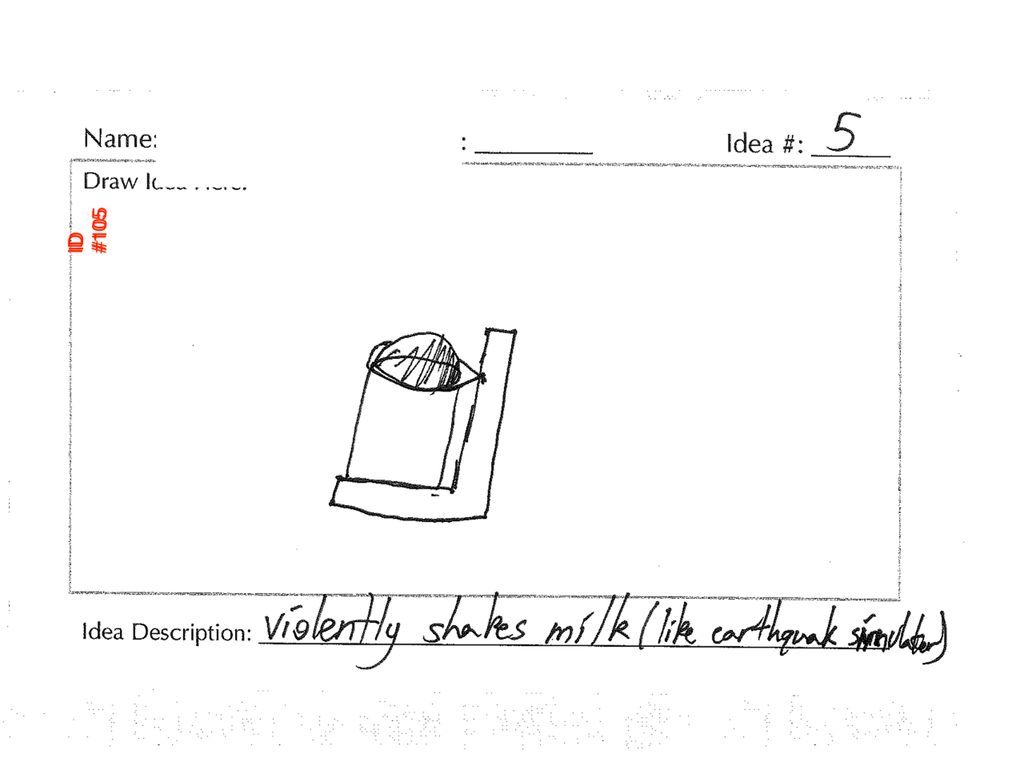 Name: : Idea #: 5
Draw Idea Here:
ID
#105
Idea Description: violently shakes milk (like earthquak simulator)